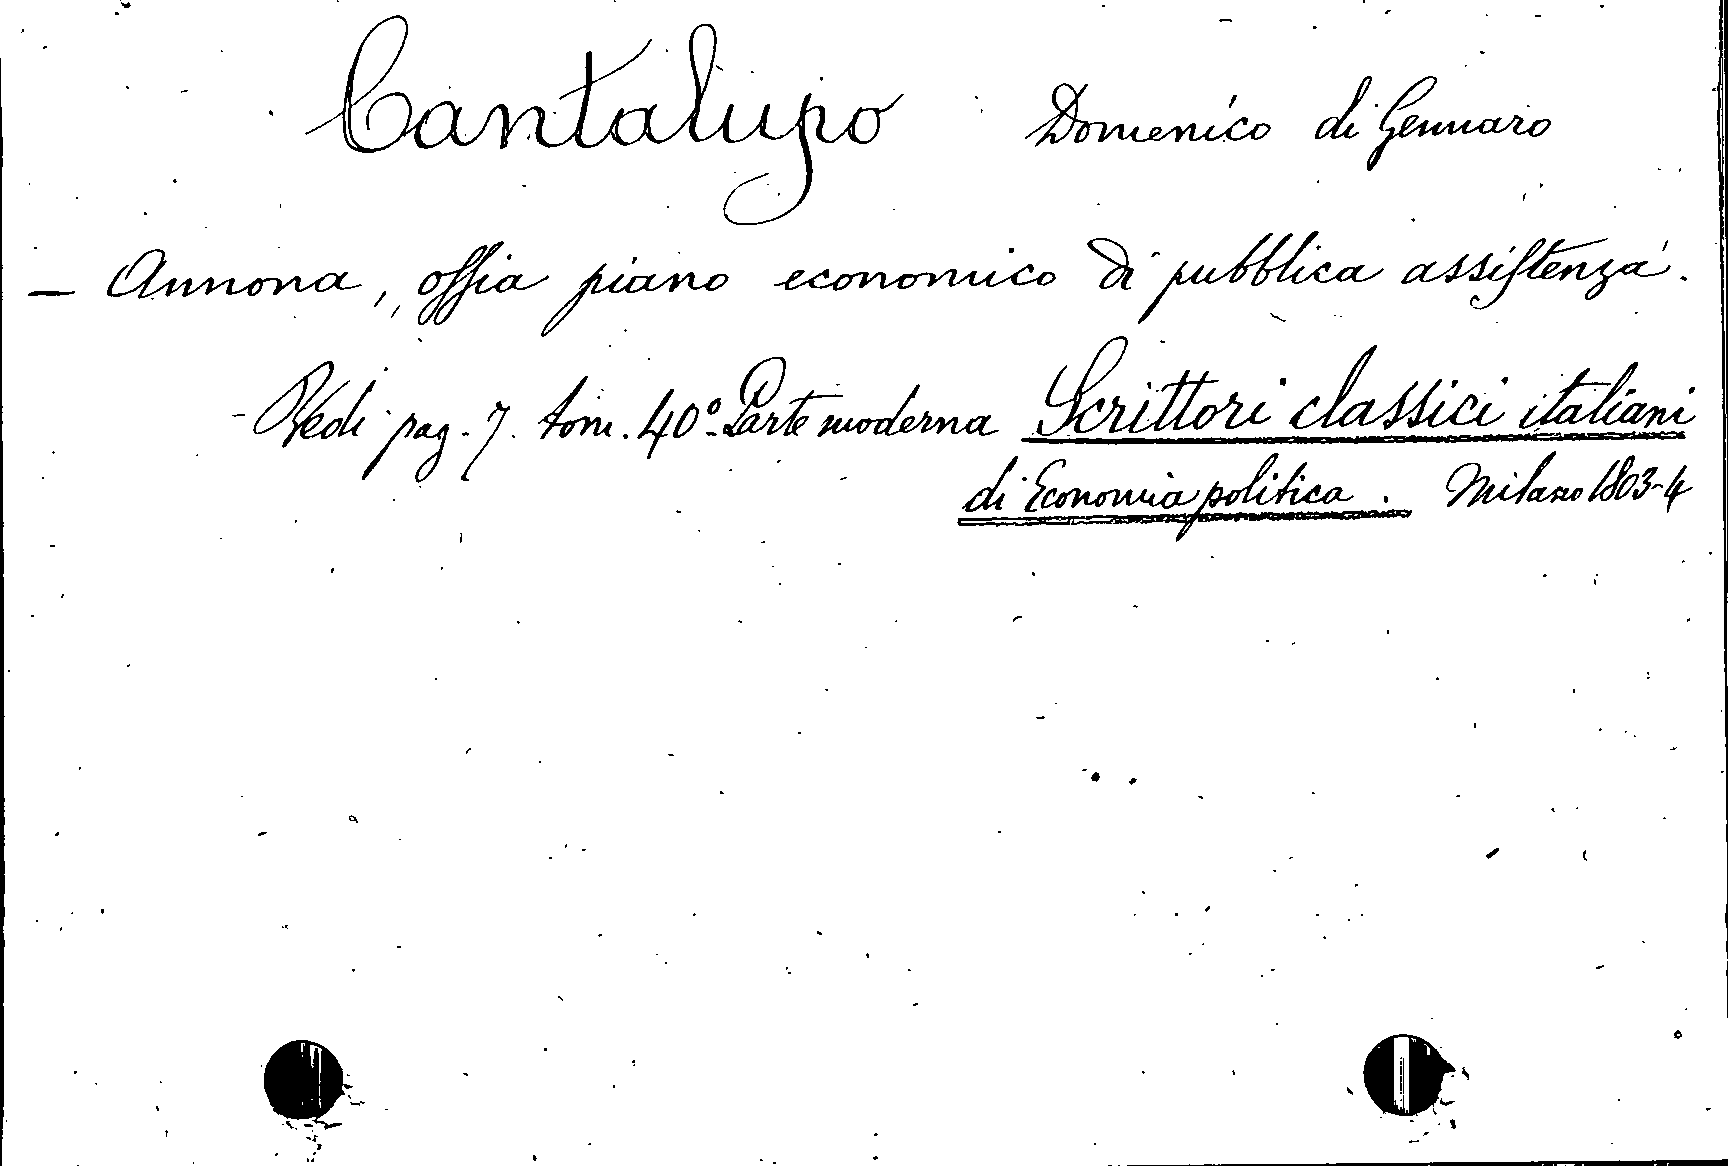 Cantalupo Domenico di Gennaro
— Annona, ossia piano economico di pubblica assistenza.
- Vedi pag. 7. tom. 40º. Parte moderna Scrittori classici italiani
di Economia politica. Milano 1803-4